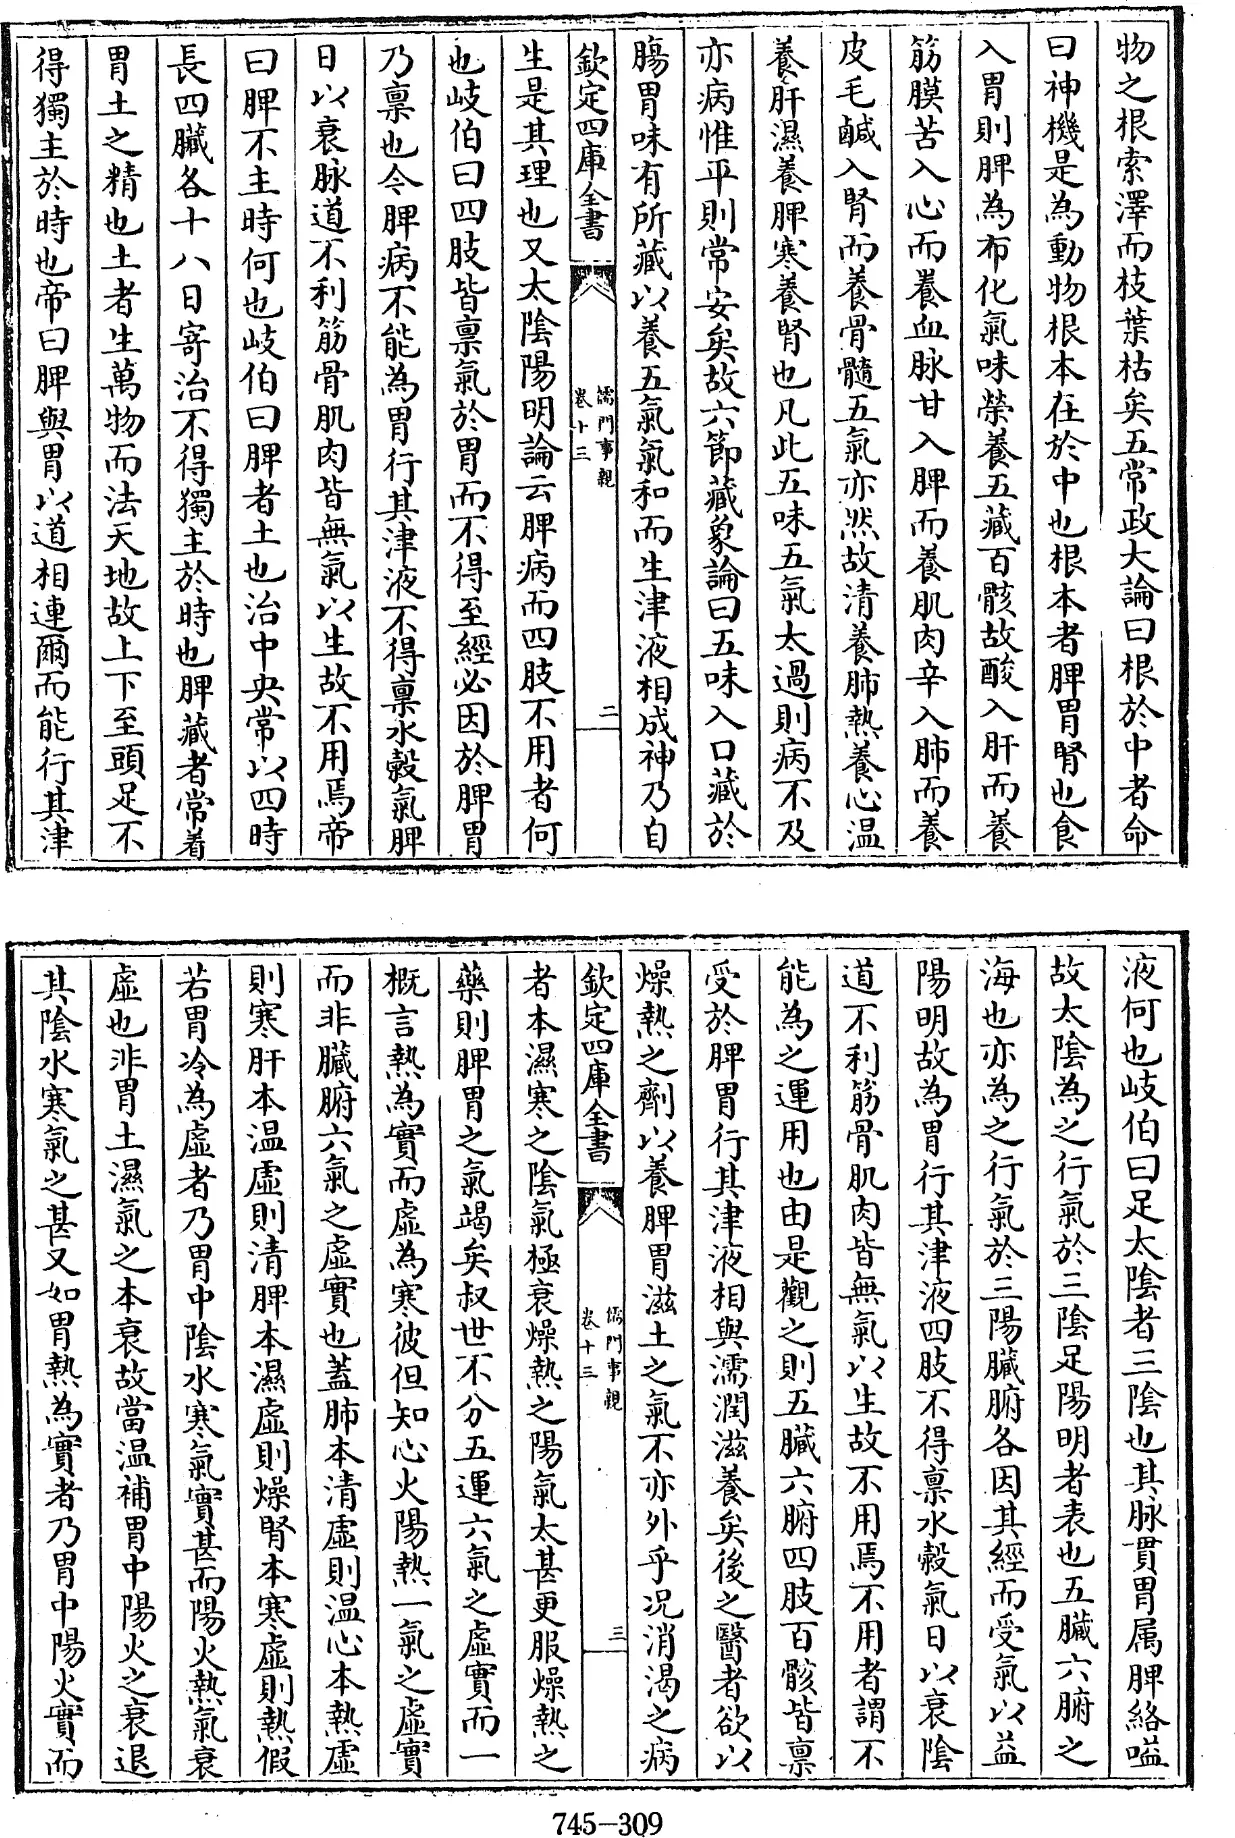 物之根索澤而枝葉枯矣五常政大論曰根於中者命
曰神機是為動物根本在於中也根本者脾胃腎也食
入胃則脾為布化氣味榮養五藏百骸故酸入肝而養
筋膜苦入心而養血脉甘入脾而養肌肉辛入肺而養
皮毛鹹入腎而養骨髓五氣亦然故清養肺熱養心温
養肝濕養脾寒養腎也凡此五味五氣太過則病不及
亦病惟平則常安矣故六節藏象論曰五味入口藏於
腸胃味有所藏以養五氣氣和而生津液相成神乃自
欽定四庫全書
儒門事親
卷十三
二
生是其理也又太陰陽明論云脾病而四肢不用者何
也岐伯曰四肢皆禀氣於胃而不得至經必因於脾胃
乃禀也令脾病不能為胃行其津液不得禀水穀氣脾
日以衰脉道不利筋骨肌肉皆無氣以生故不用焉帝
曰脾不主時何也岐伯曰脾者土也治中央常以四時
長四臟各十八日寄治不得獨主於時也脾藏者常着
胃土之精也土者生萬物而法天地故上下至頭足不
得獨主於時也帝曰脾與胃以道相連爾而能行其津
液何也岐伯曰足太陰者三陰也其脉貫胃属脾絡嗌
故太陰為之行氣於三陰足陽明者表也五臟六腑之
海也亦為之行氣於三陽臟腑各因其經而受氣以益
陽明故為胃行其津液四肢不得禀水穀氣日以衰陰
道不利筋骨肌肉皆無氣以生故不用焉不用者謂不
能為之運用也由是觀之則五臟六腑四肢百骸皆禀
受於脾胃行其津液相與濡潤滋養矣後之醫者欲以
燥熱之劑以養脾胃滋土之氣不亦外乎况消渴之病
欽定四庫全書
儒門事親
卷十三
三
者本濕寒之陰氣極衰燥熱之陽氣太甚更服燥熱之
藥則脾胃之氣竭矣叔世不分五運六氣之虛實而一
概言熱為實而虛為寒彼但知心火陽熱一氣之虛實
而非臟腑六氣之虛實也蓋肺本清虛則温心本熱虛
則寒肝本温虛則清脾本濕虛則燥腎本寒虛則熱假
若胃冷為虛者乃胃中陰水寒氣實甚而陽火熱氣衰
虛也非胃土濕氣之本衰故當温補胃中陽火之衰退
其陰水寒氣之甚又如胃熱為實者乃胃中陽火實而
745-309